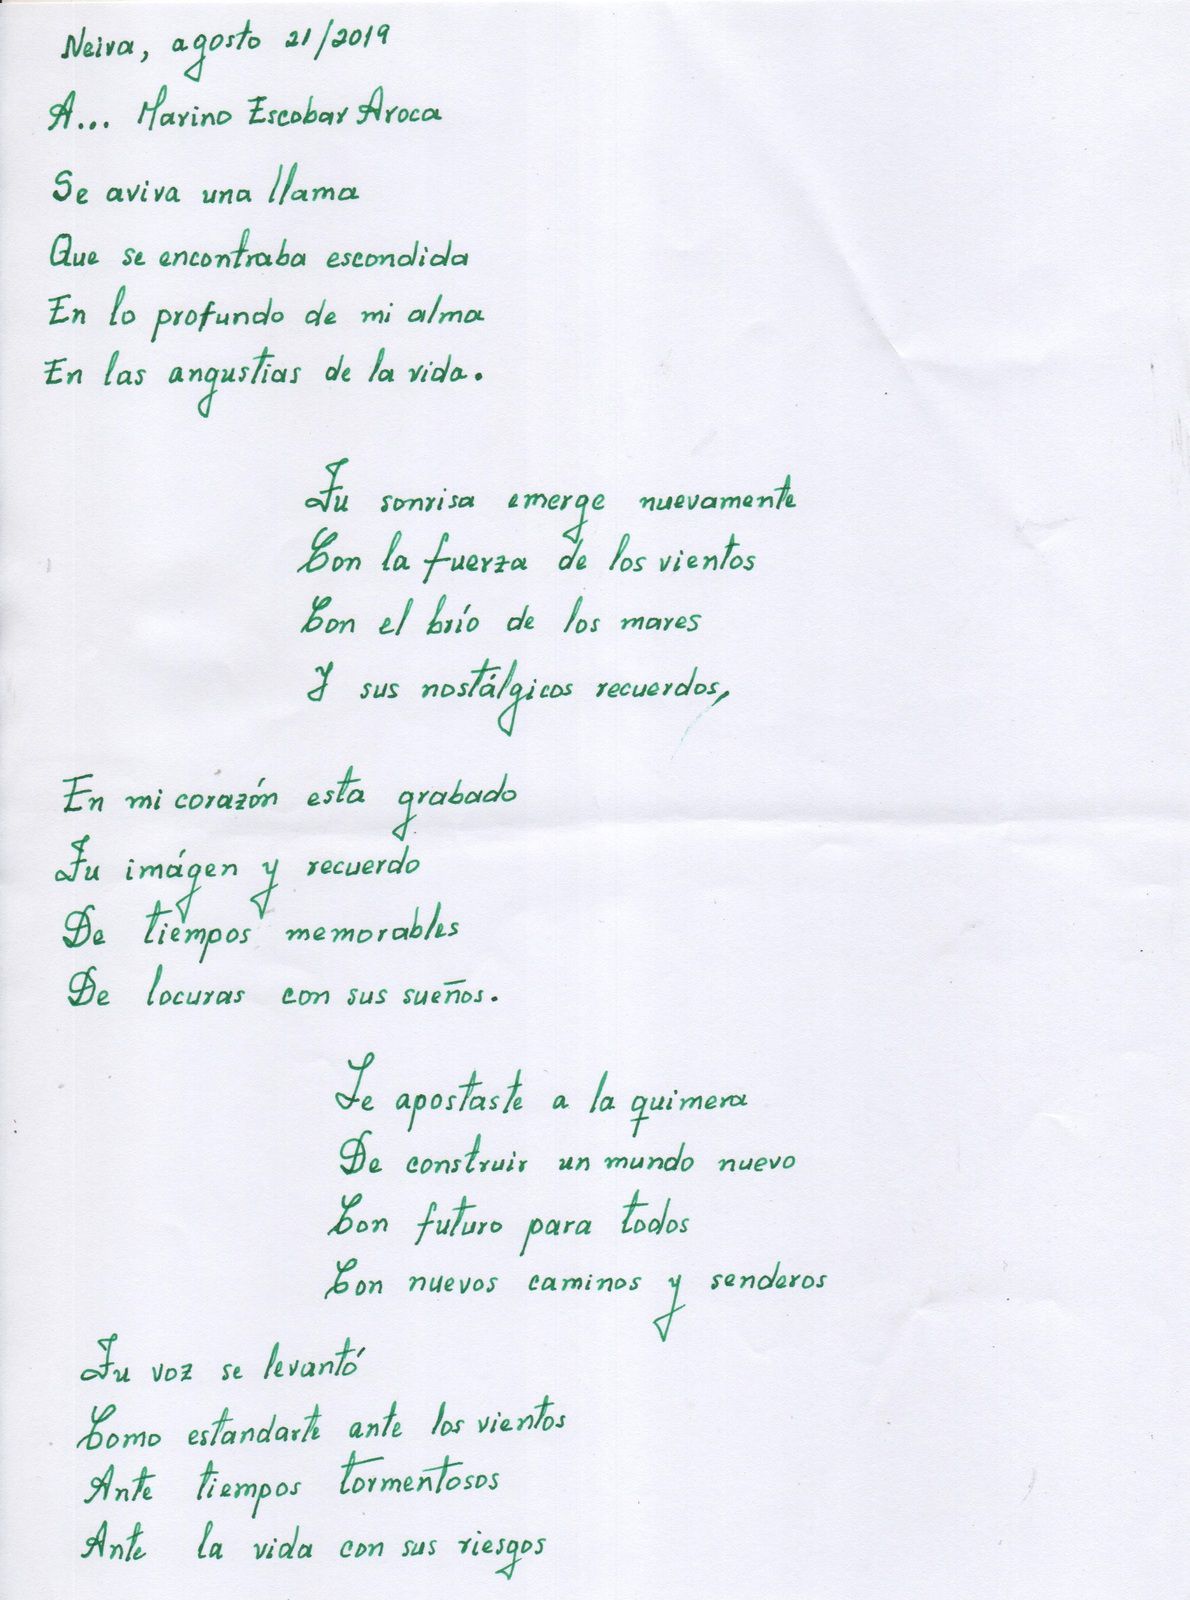 Neiva, agosto 21/2019
A... Marino Escobar Aroca
Se aviva una llama
Que se encontraba escondida
En lo profundo de mi alma
En las angustias de la vida.
Tu sonrisa emerge nuevamente
Con la fuerza de los vientos
Con el brío de los mares
Y sus nostálgicos recuerdos,
En mi corazón esta grabado
Tu imágen y recuerdo
De tiempos memorables
De locuras con sus sueños.
Le apostaste a la quimera
De construir un mundo nuevo
Con futuro para todos
Con nuevos caminos y senderos
Tu voz se levantó
Como estandarte ante los vientos
Ante tiempos tormentosos
Ante la vida con sus riesgos